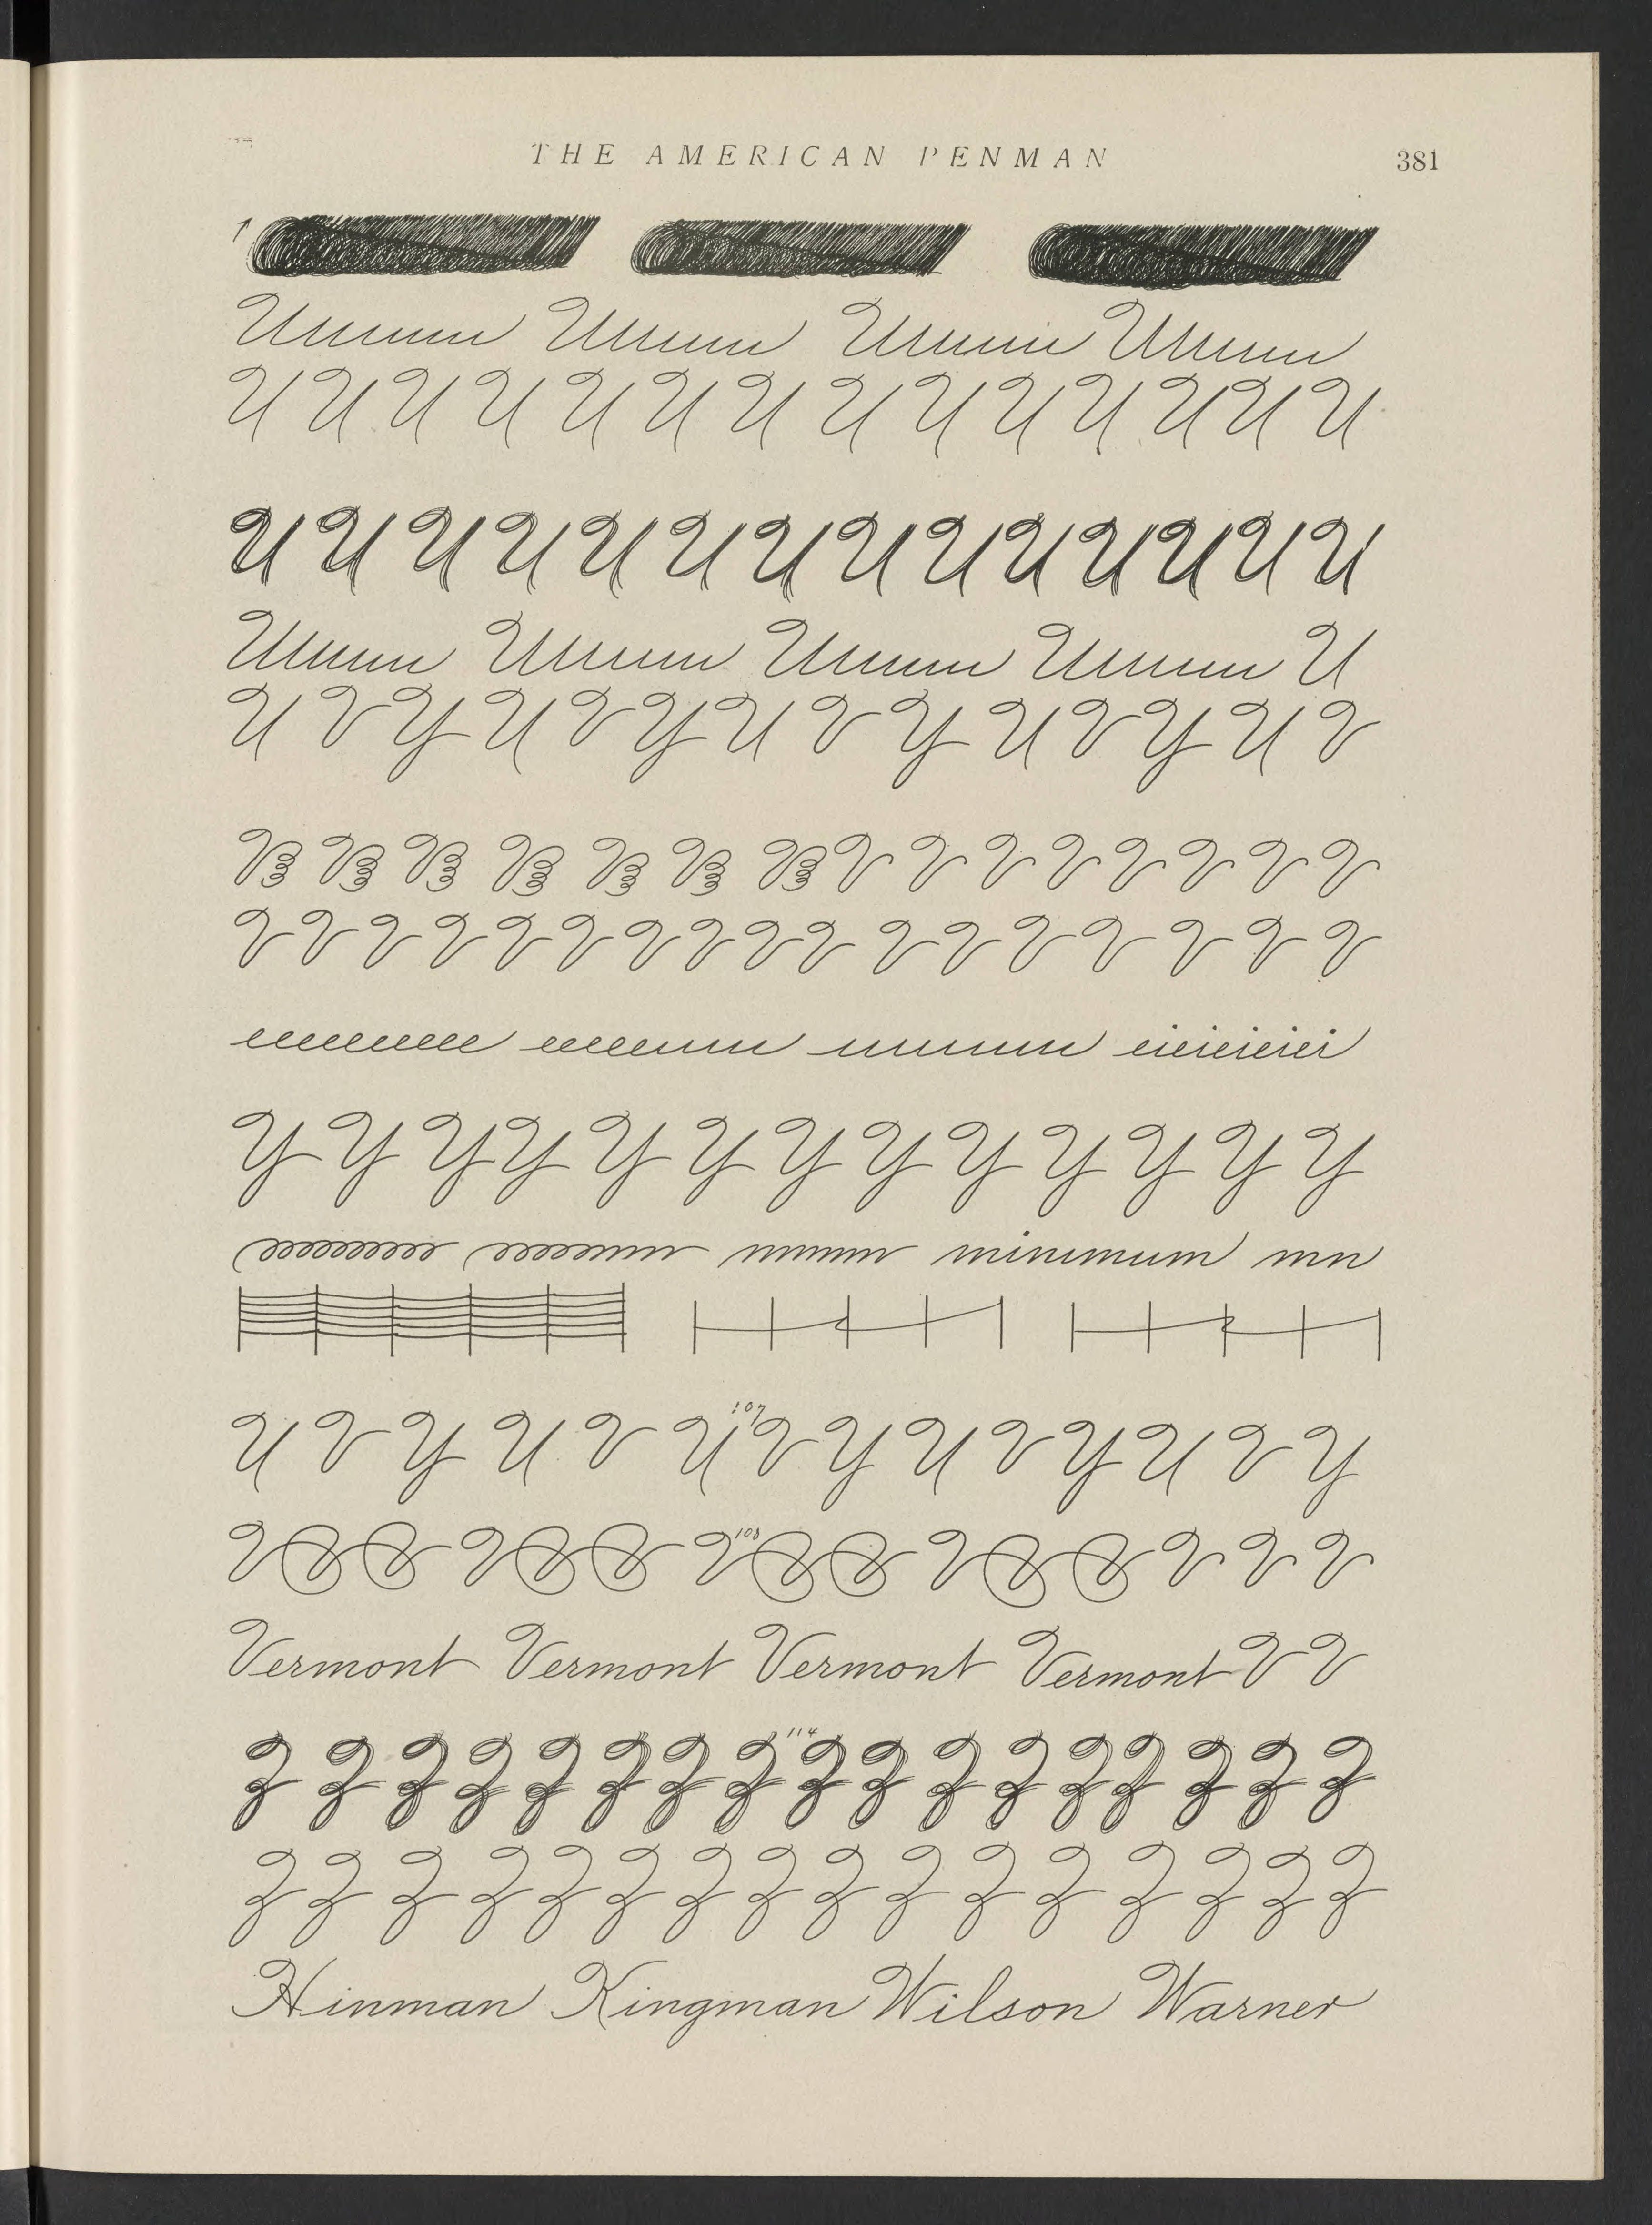 THE AMERICAN PENMAN 381
1
Uuuuuu Uuuuuu Uuuuuu Uuuuuu
U U U U U U U U U U U U U U
U U U U U U U U U U U U U U
Uuuuuu Uuuuuu Uuuuuu Uuuuuu U
U V Y U V Y U V Y U V Y U V
V V V V V V V V V V V V V V V
V V V V V V V V V V V V V V V V V
eeeeeeeeee eeeeeuuu uuuuuu eieieieiei
Y Y Y Y Y Y Y Y Y Y Y Y Y
minimum mn
107
U V Y U V U V Y U V Y U V Y
108
V V V V V V V V V V V V V V V
Vermont Vermont Vermont Vermont V V
114
Z Z Z Z Z Z Z Z Z Z Z Z Z Z Z Z Z
Z Z Z Z Z Z Z Z Z Z Z Z Z Z Z Z
Hinman Kingman Wilson Warner